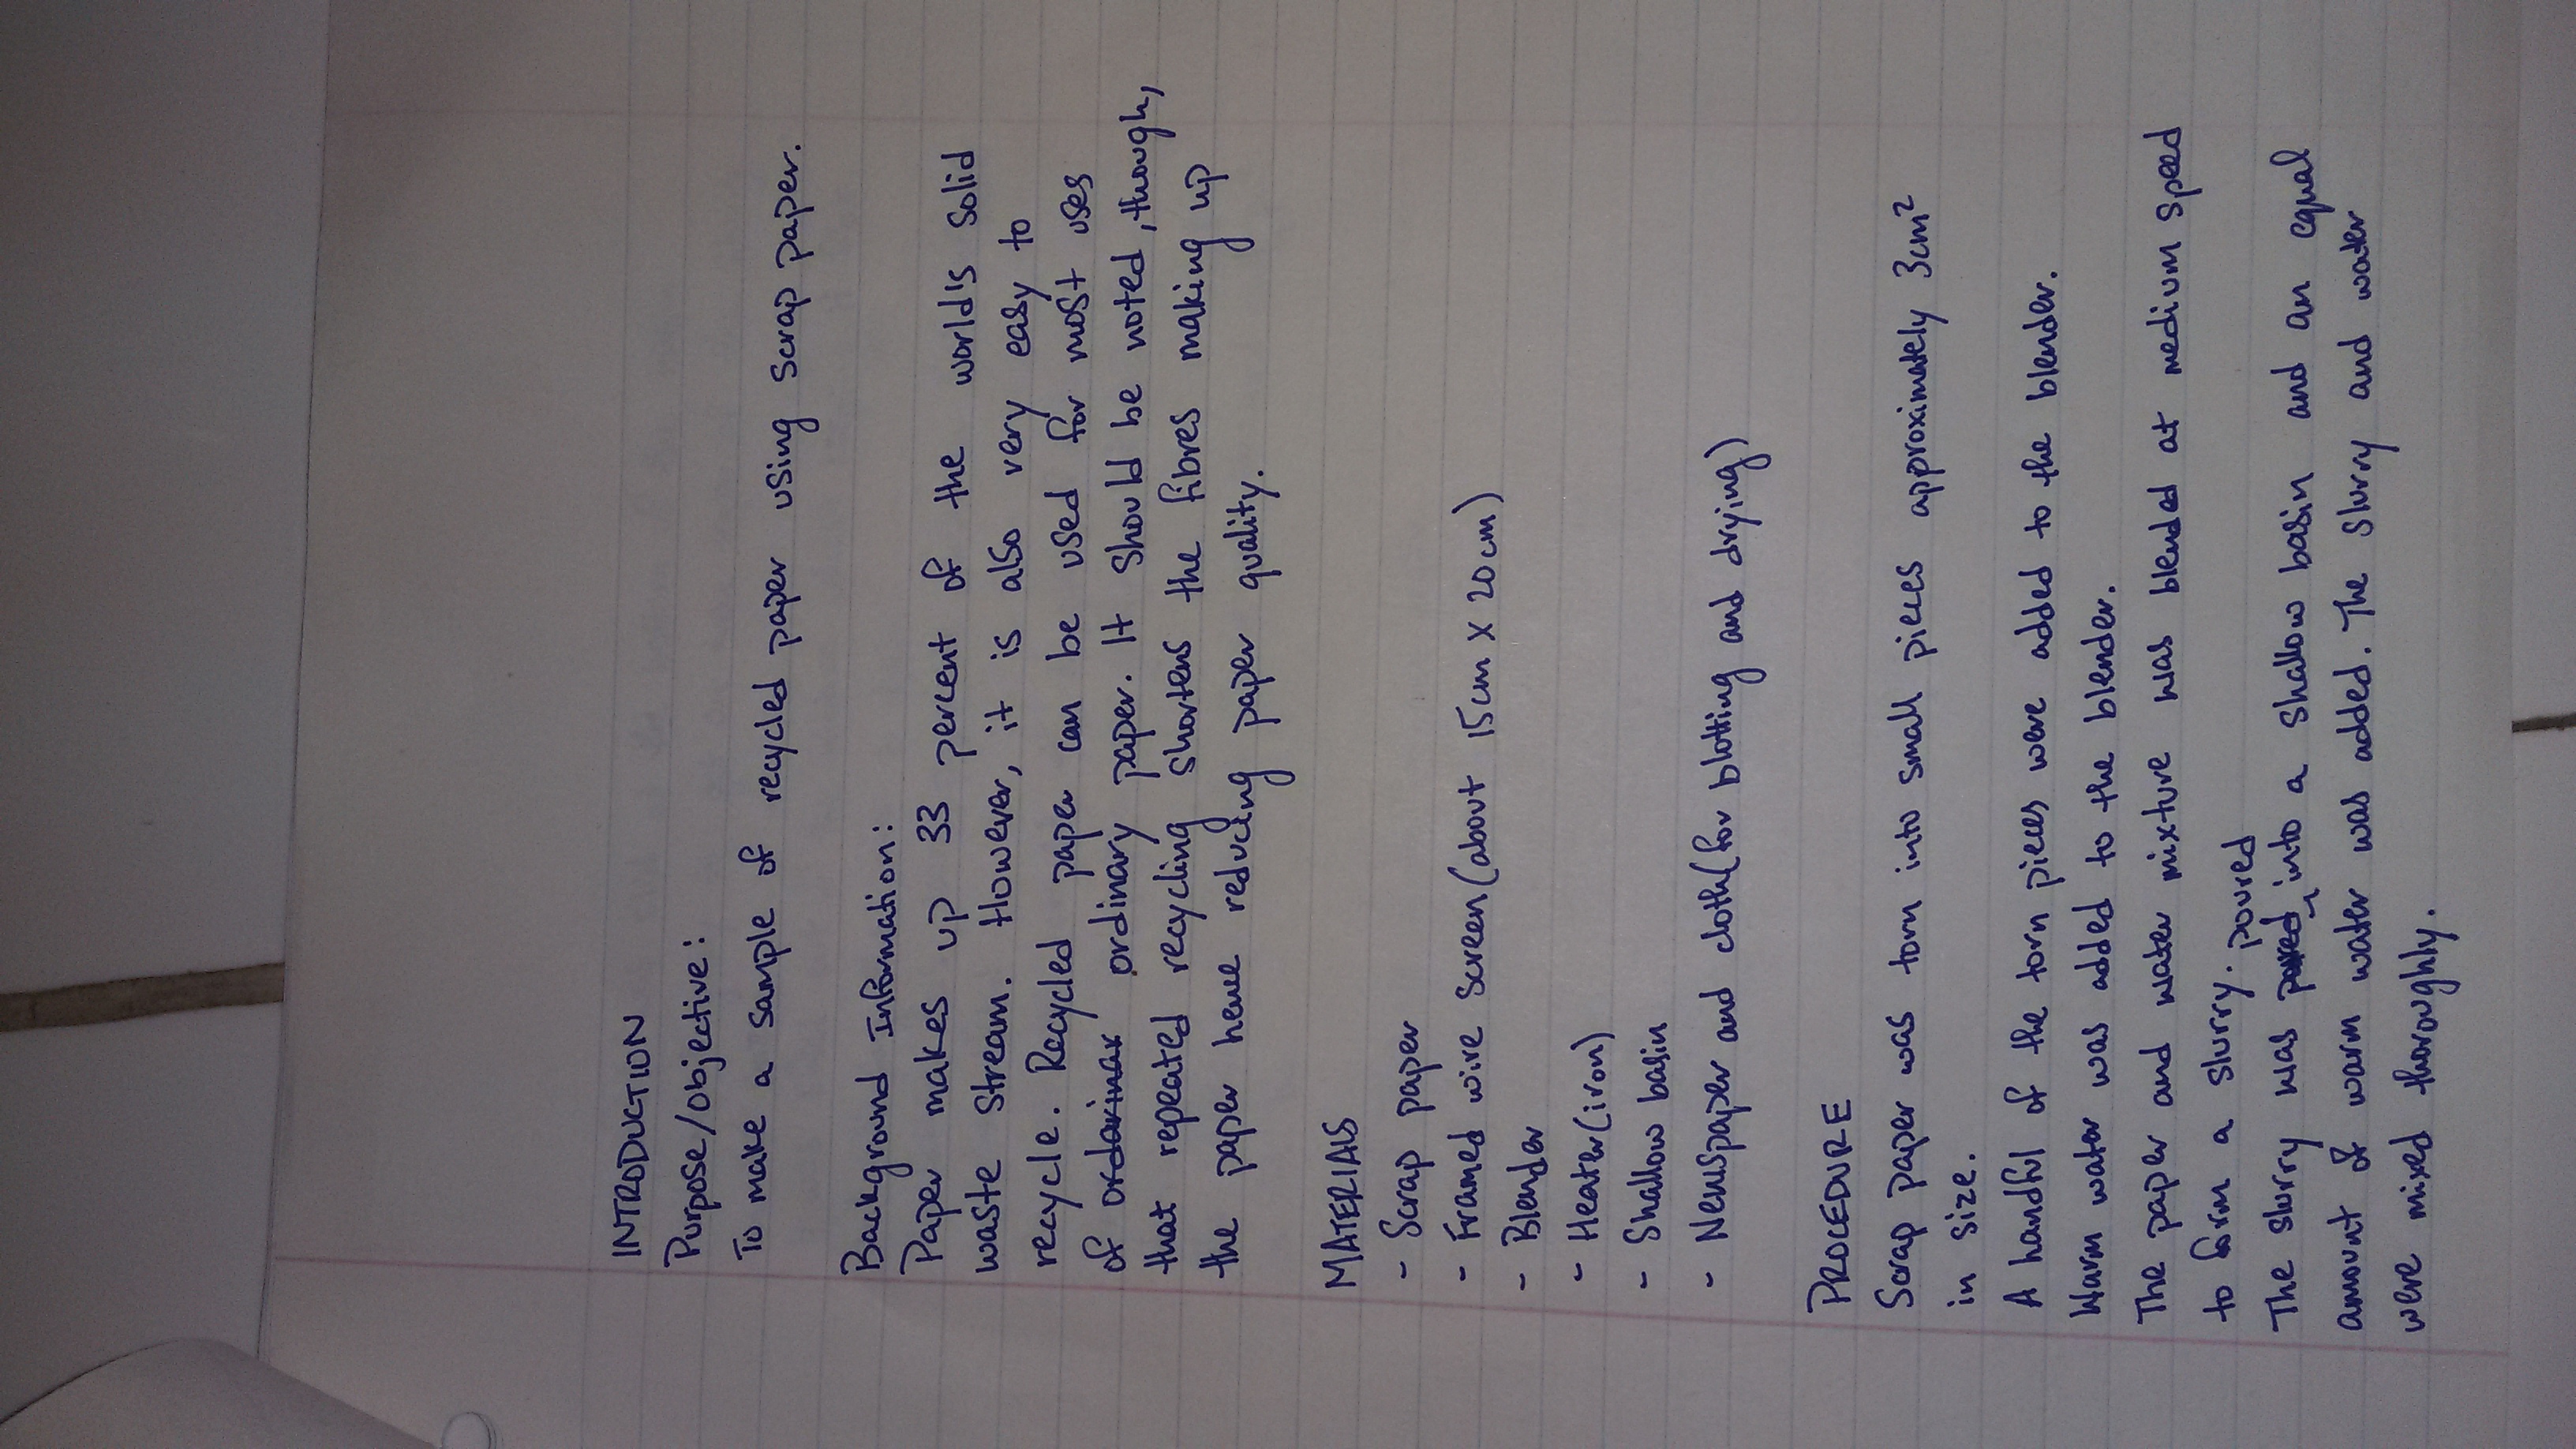 INTRODUCTION
Purpose/objective:
To make a sample of recycled paper using scrap paper.
Background Information:
Paper makes up 33 percent of the world's solid
waste stream. However, it is also very easy to
recycle. Recycled paper can be used for most uses
of ordarinar ordinary paper. It should be noted, though,
that repeated recycling shortens the fibres making up
the paper hence reducing paper quality.
MATERIALS
- Scrap paper
- Framed wire screen (about 15cm X 20cm)
- Blender
- Heater (iron)
- Shallow basin
- Newspaper and cloth (for blotting and drying)
PROCEDURE
Scrap paper was torn into small pieces approximately 3cm²
in size.
A handful of the torn pieces were added to the blender.
Warm water was added to the blender.
The paper and water mixture was blended at medium speed
to form a slurry.
poured
The slurry was into a shallow basin and an equal
amount of warm water was added. The slurry and water
were mixed thoroughly.